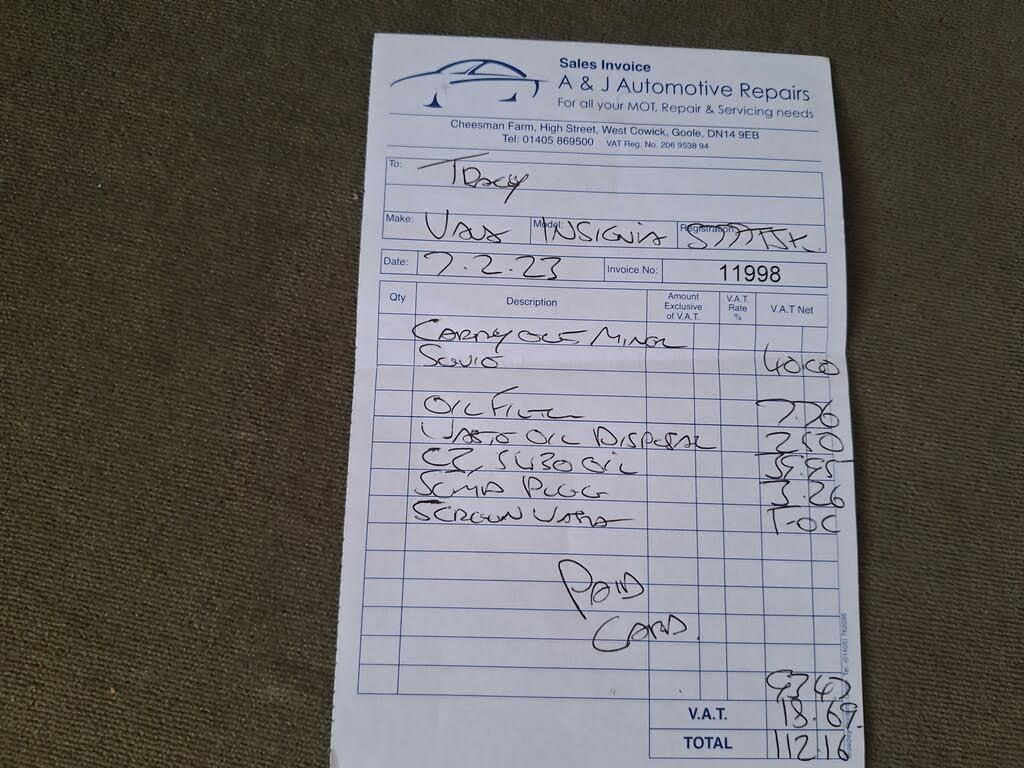 Sales Invoice
A & J Automotive Repairs
For all your MOT, Repair & Servicing needs
Cheesman Farm, High Street, West Cowick, Goole, DN14 9EB
Tel: 01405 869500 VAT Reg. No. 206 9538 94
To: Tracy
Make: Model: INSIGNIA Registration
Date: 7.2.23 Invoice No: 11998
Qty Description Amount Exclusive of V.A.T. V.A.T. Rate % V.A.T Net
CARRY OUT MINOR
40 00
OIL FILTER 7.76
WASTE OIL DISPOSAL 2.50
OIL
PLUG 3.26
SCREEN
PAID
CARD.
V.A.T. 18.69
TOTAL 112.16